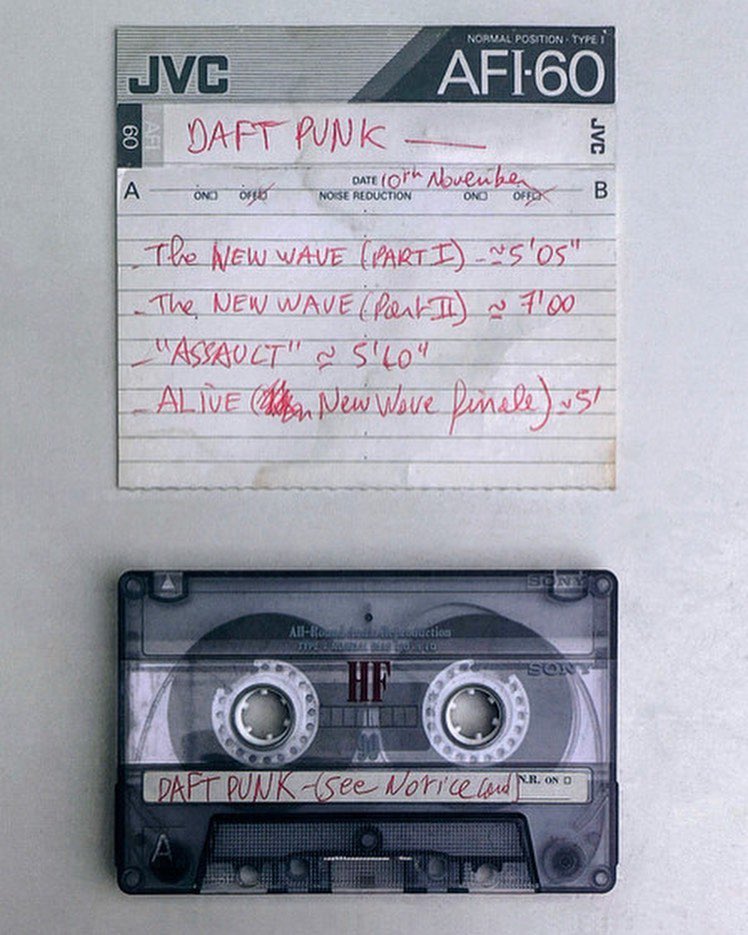 NORMAL POSITION · TYPE I
JVC AFI·60
60 AFI DAFT PUNK — JVC
DATE 10th November
A ON OFF NOISE REDUCTION ON OFF B
- The NEW WAVE (PART I) - ≃ 5'05"
- The NEW WAVE (Part II) ≃ 7'00
- "ASSAULT" ≃ 5'10"
- ALIVE ( New Wave finale) ~ 5'
SONY
All-Round Audio Reproduction
SONY
HF
90
DAFT PUNK - (see Notice card) N.R. ON
A